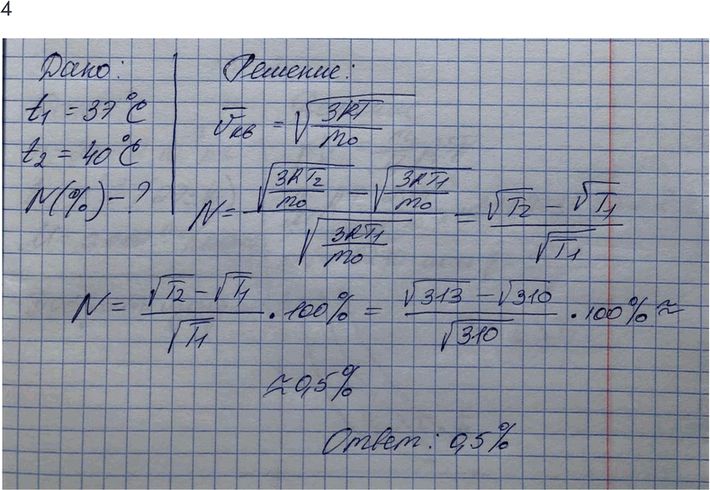 4
Дано:
t₁ = 37°C
t₂ = 40°C
N(%) - ?
Решение:
v̅кв = √(3kT/m₀)
N = (√(3kT₂/m₀) - √(3kT₁/m₀)) / √(3kT₁/m₀) = (√T₂ - √T₁) / √T₁
N = (√T₂ - √T₁) / √T₁ · 100% = (√313 - √310) / √310 · 100% ≈
≈ 0,5%
Ответ: 0,5%